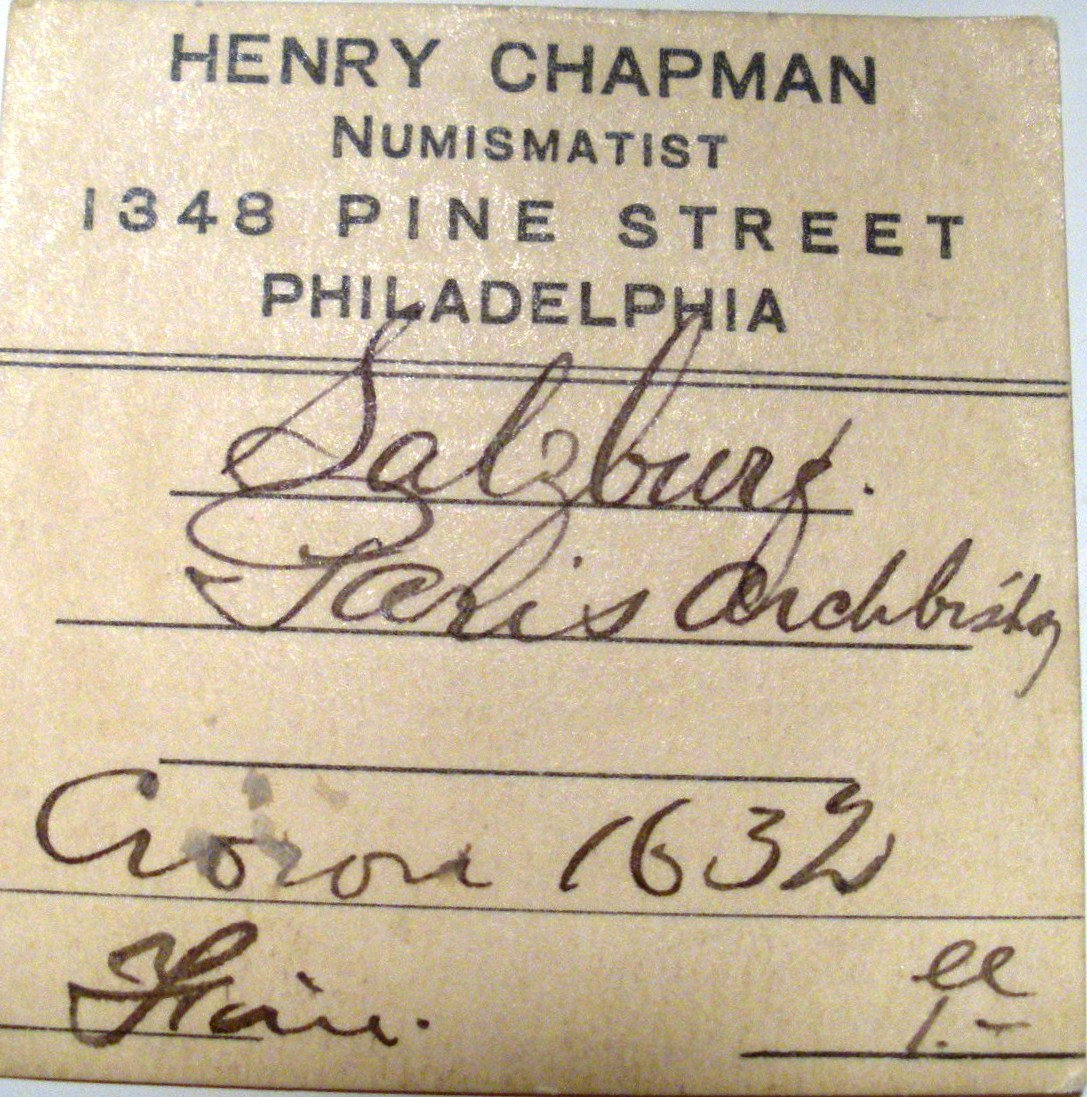 HENRY CHAPMAN
NUMISMATIST
1348 PINE STREET
PHILADELPHIA
Salzburg.
Paris Archbishop
Crown 1632
Fair.
ee
1.-